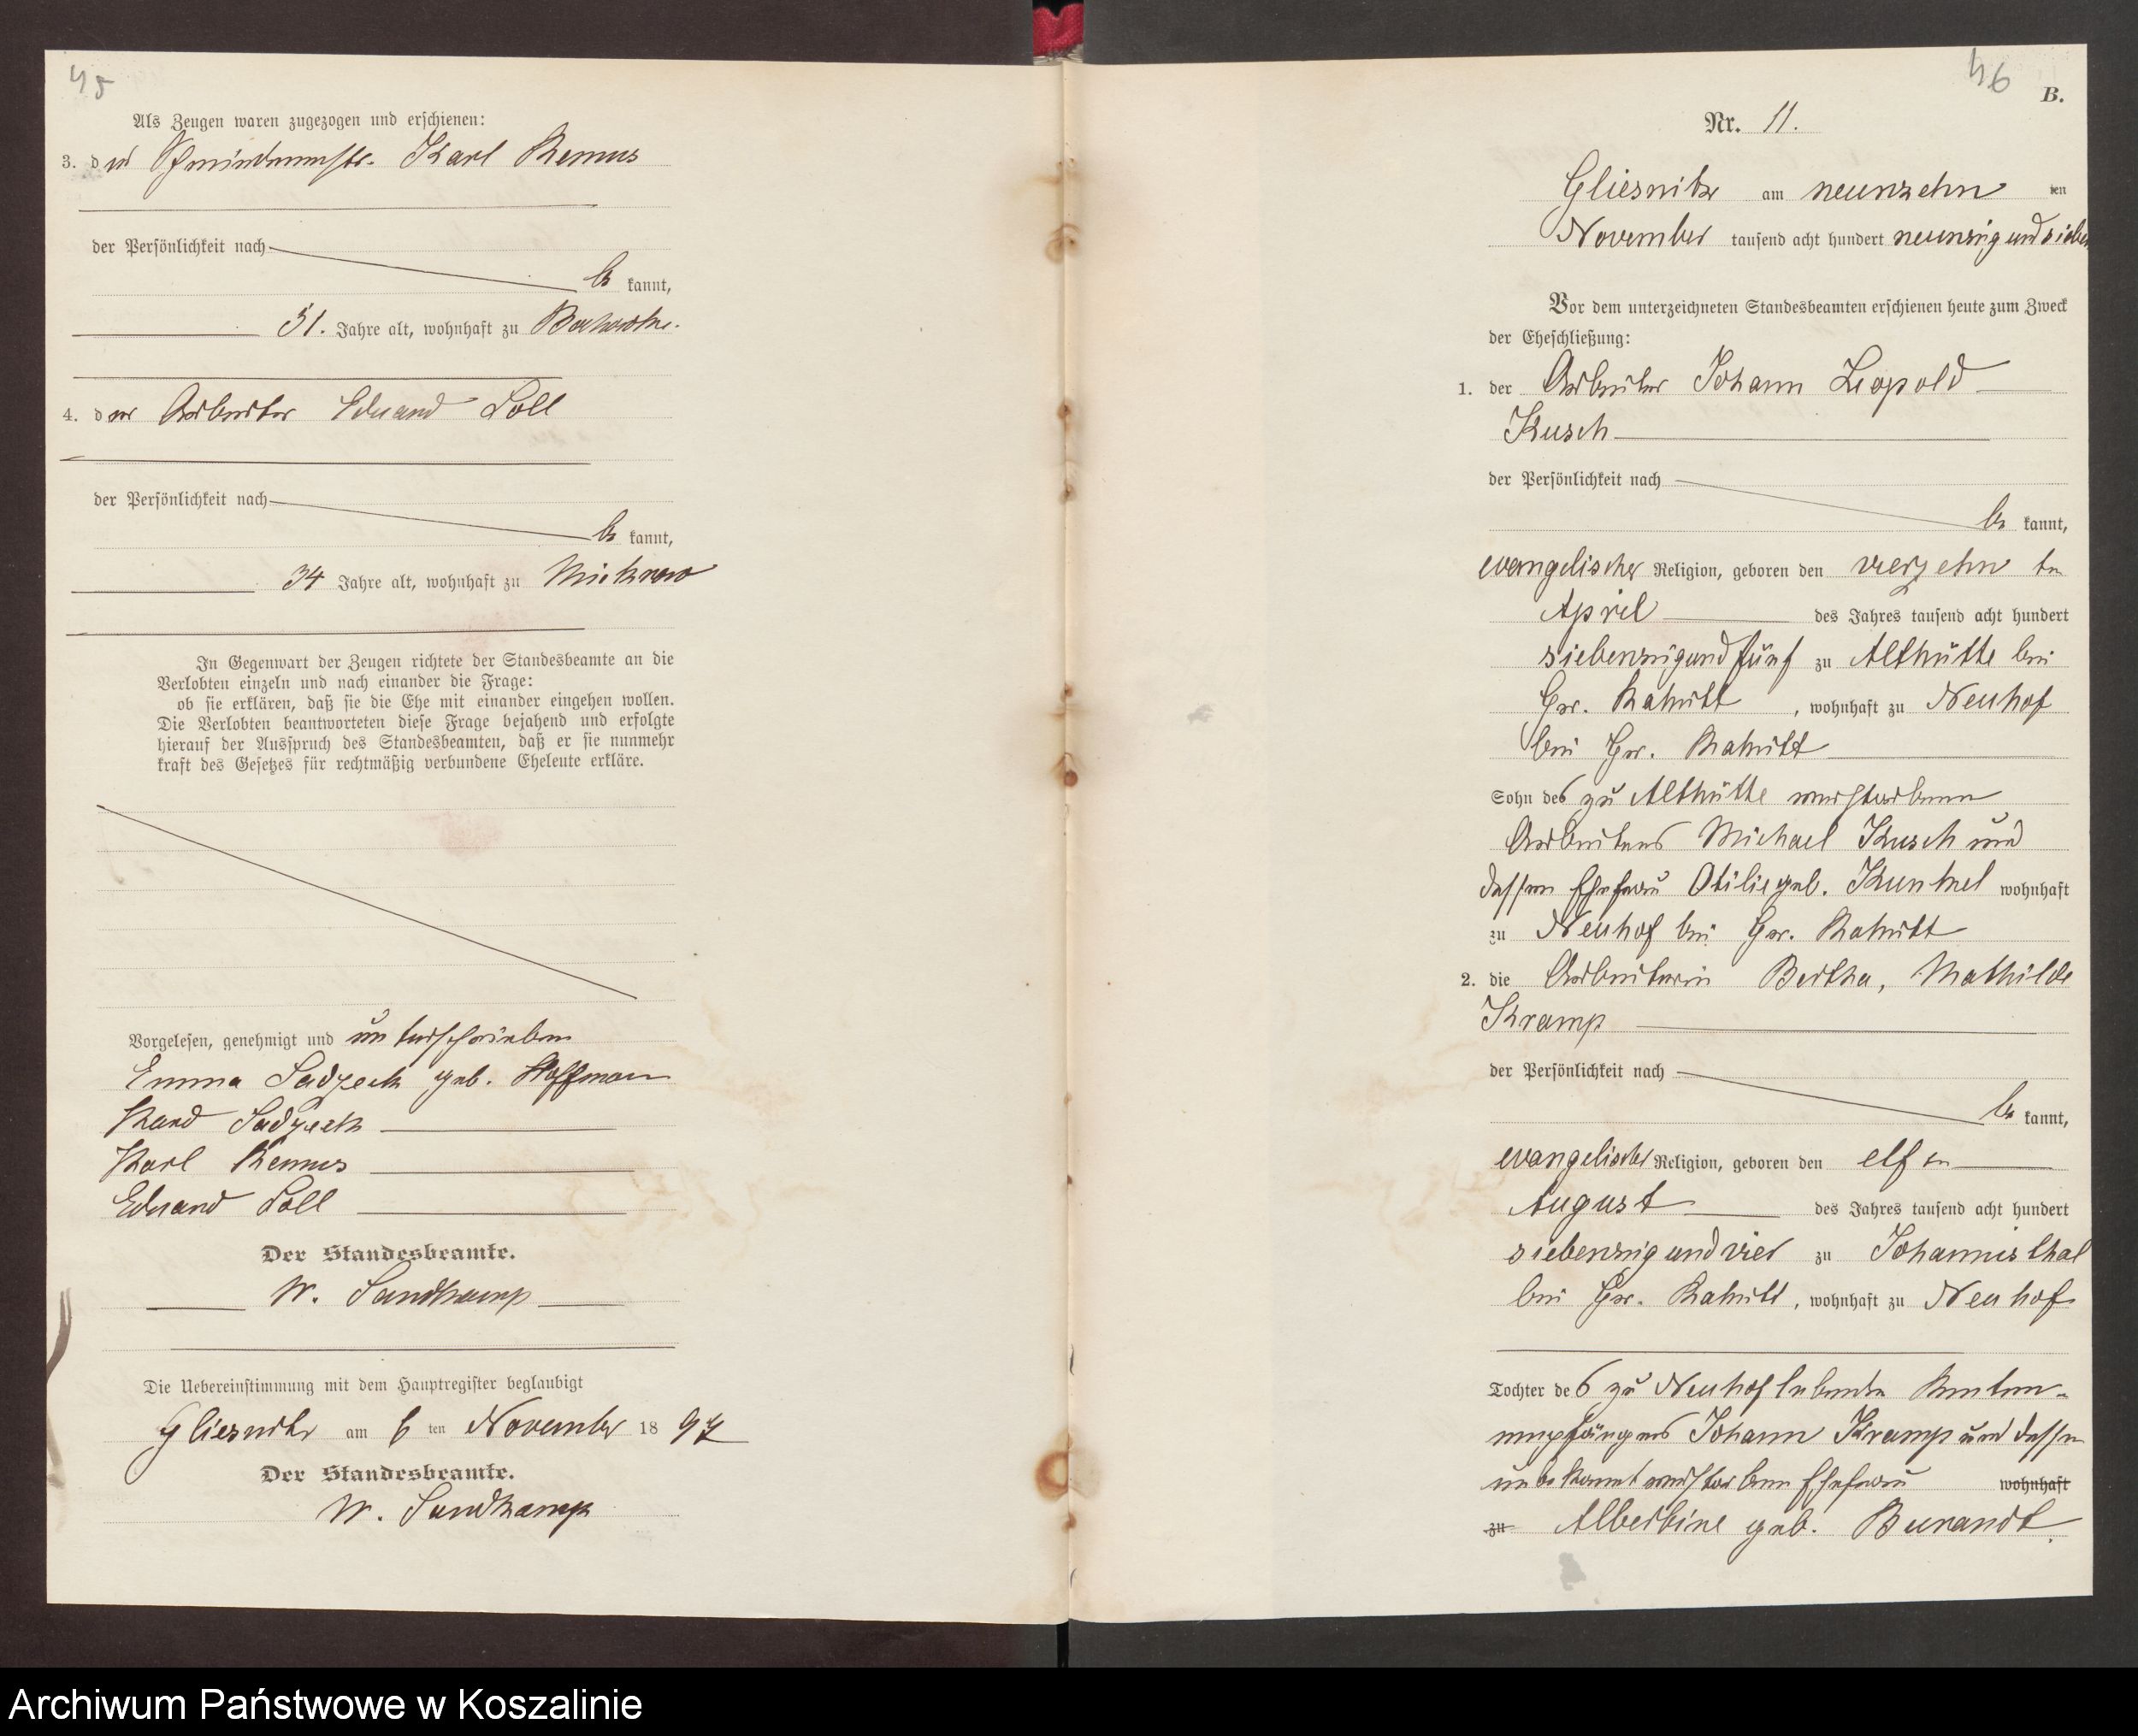 45
Als Zeugen waren zugezogen und erschienen:
3. der Karl Remus
der Persönlichkeit nach
be kannt,
31. Jahre alt, wohnhaft zu
4. der Arbeiter Eduard Loll
der Persönlichkeit nach
be kannt,
34 Jahre alt, wohnhaft zu Mickrow
In Gegenwart der Zeugen richtete der Standesbeamte an die
Verlobten einzeln und nach einander die Frage:
ob sie erklären, daß sie die Ehe mit einander eingehen wollen.
Die Verlobten beantworteten diese Frage bejahend und erfolgte
hierauf der Ausspruch des Standesbeamten, daß er sie nunmehr
kraft des Gesetzes für rechtmäßig verbundene Eheleute erkläre.
Vorgelesen, genehmigt und unterschrieben
Emma Sadzeck geb. Hoffman
Sadzeck
Karl Remus
Eduard Loll
Der Standesbeamte.
W. Sandkamp
Die Uebereinstimmung mit dem Hauptregister beglaubigt
Gliesnitz am 6 ten November 18 97
Der Standesbeamte.
W. Sandkamp
46
B.
Nr. 11.
Gliesnitz am neunzehn ten
November tausend acht hundert neunzig und sieben
Vor dem unterzeichneten Standesbeamten erschienen heute zum Zweck
der Eheschließung:
1. der Arbeiter Johann Leopold
Kusch
der Persönlichkeit nach
be kannt,
evangelischer Religion, geboren den vierzehn ten
April des Jahres tausend acht hundert
siebenzig und fünf zu Althütte bei
Gr. Rakitt, wohnhaft zu Neuhof
bei Gr. Rakitt
Sohn des zu Althütte verstorbenen
Arbeiters Michael Kusch und
dessen Ehefrau Otilie geb. Kunkel wohnhaft
zu Neuhof bei Gr. Rakitt
2. die Arbeiterin Bertha, Mathilde
Kramp
der Persönlichkeit nach
be kannt,
evangelischer Religion, geboren den elf ten
August des Jahres tausend acht hundert
siebenzig und vier zu Johannisthal
bei Gr. Rakitt, wohnhaft zu Neuhof
Tochter des zu Neuhof lebenden Renten-
empfängers Johann Kramp und dessen
unbekannt verstorbenen Ehefrau wohnhaft
zu Albertine geb. Burandt.
Archiwum Państwowe w Koszalinie